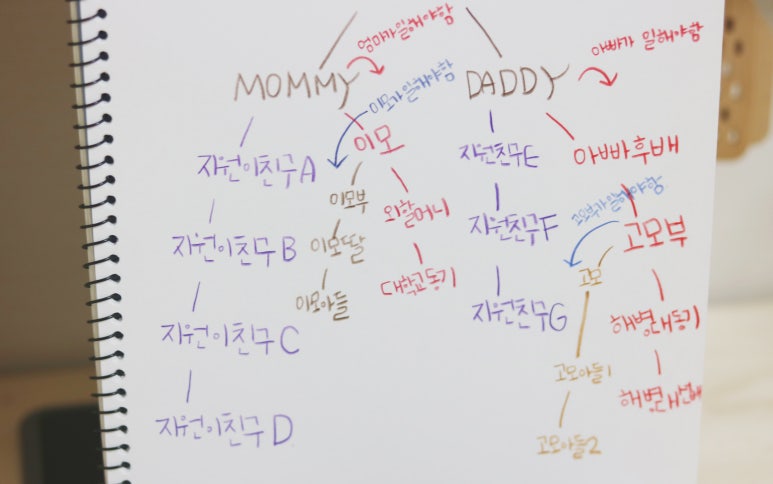 엄마가일해야함
아빠가 일해야함
MOMMY
DADDY
이모가일해야함
이모
지원이친구A
지원친구E
아빠후배
이모부
외할머니
고모부가일해야함
지원이친구B
이모딸
지원친구F
고모부
고모
대학교동기
이모아들
지원친구G
해병대동기
지원이친구C
고모아들1
해병대선배
지원이친구D
고모아들2